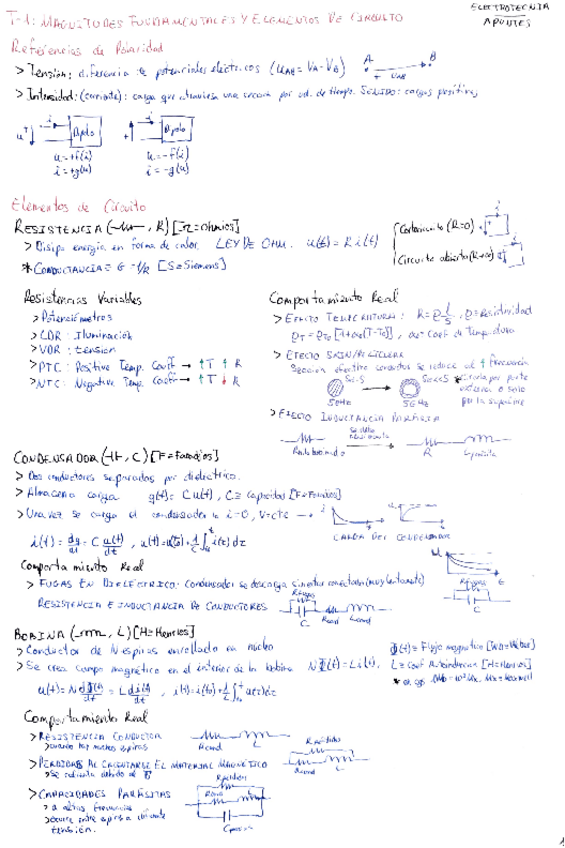 ELECTROTECNIA
APUNTES
T-1: MAGNITUDES FUNDAMENTALES Y ELEMENTOS DE CIRCUITO
Referencias de Polaridad
> Tensión: diferencia de potenciales eléctricos (uAB = VA - VB)
A B
+ uAB -
> Intensidad: (corriente): carga que atraviesa una sección por ud. de tiempo. SENTIDO: cargas positivas
Dipolo Dipolo
u = +f(i) u = -f(i)
i = +g(u) i = -g(u)
Elementos de Circuito
RESISTENCIA (, R) [Ω = ohmios]
> Disipa energía en forma de calor. LEY DE OHM. u(t) = R i(t)
Cortocircuito (R=0)
Circuito abierto (R→∞)
* CONDUCTANCIA = G = 1/R [S = Siemens]
Resistencias Variables
> Potenciómetros
> LDR: Iluminación
> VDR: tensión
> PTC: Positive Temp. Coeff → ↑T ↑R
> NTC: Negative Temp. Coeff → ↑T ↓R
Comportamiento Real
> EFECTO TEMPERATURA: R = ρ l/S, ρ = Resistividad
ρT = ρT0 [1+α(T-T0)], α = Coef de Temperatura
> EFECTO SKIN/PELICULAR
Sección efectiva conductor se reduce al ↑ frecuencia
50Hz 5GHz
> EFECTO INDUCTANCIA PARÁSITA
R Lparásita
CONDENSADOR (, C) [F = Faradios]
> Dos conductores separados por dieléctrico.
> Almacena carga q(t) = C u(t), C = capacidad [F = Faradios]
> Una vez se carga el condensador i = 0, V = cte →
CARGA DEL CONDENSADOR
i(t) = dq/dt = C du(t)/dt, u(t) = u(t0) + 1/C ∫ i(z) dz
Comportamiento Real
> FUGAS EN DIELÉCTRICO: Condensador se descarga sin estar conectado (muy lentamente)
RESISTENCIA E INDUCTANCIA DE CONDUCTORES
Rfugas
C Rcond Lcond
BOBINA (, L) [H = Henrios]
> Conductor de N espiras enrollado en núcleo
> Se crea campo magnético en el interior de la bobina NΦ(t) = L i(t).
Φ(t) = Flujo magnético [Wb = Weber]
L = coef Autoinducción [H = Henrios]
u(t) = N dΦ(t)/dt = L di(t)/dt, i(t) = i(t0) + 1/L ∫ u(z) dz
Comportamiento Real
> RESISTENCIA CONDUCTOR
> cuando hay muchas espiras
Rcond L
> PÉRDIDAS AL CALENTARSE EL MATERIAL MAGNÉTICO
Rpérdidas
Rcond L
> CAPACIDADES PARÁSITAS
> a altas frecuencias
> ocurre entre espiras a diferente
tensión.
Rpérdidas
Rcond
Cparásita
1